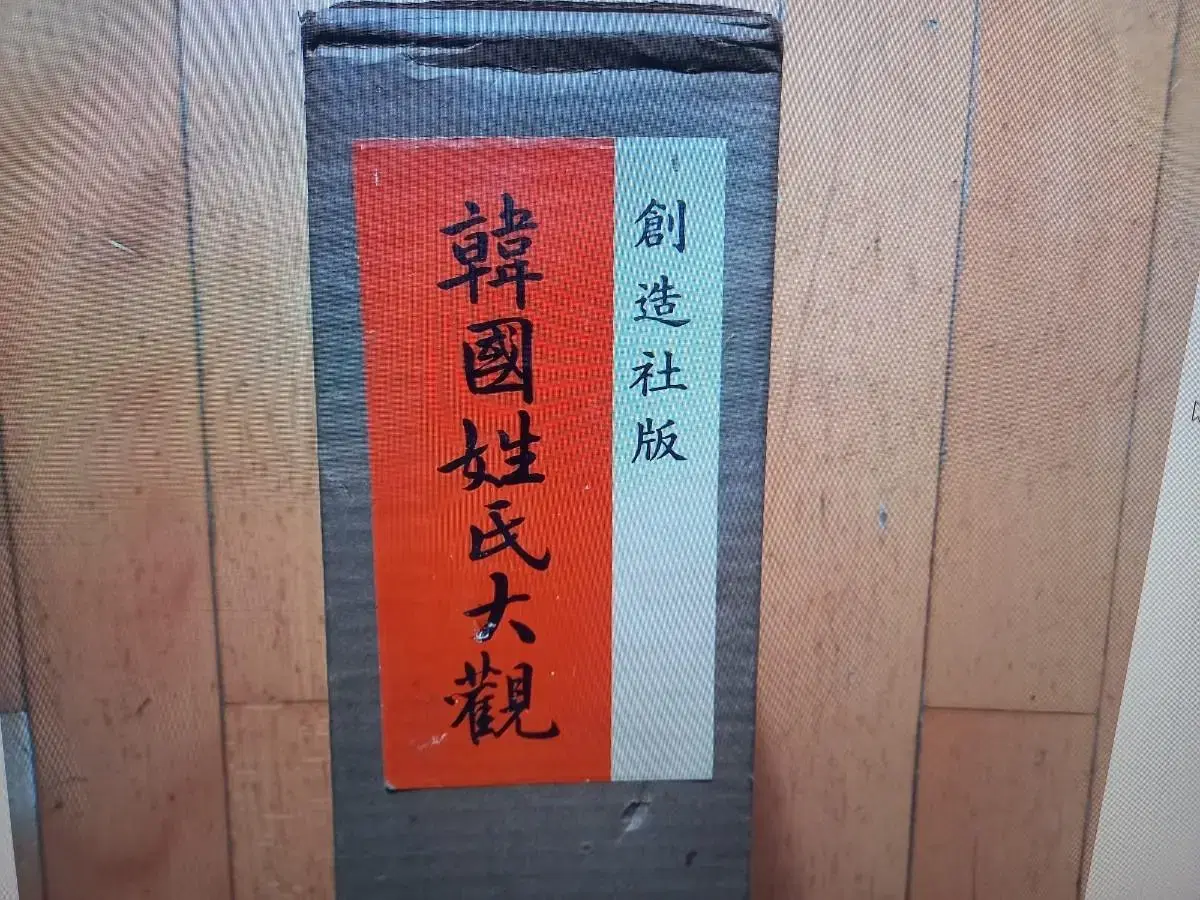 創造社版
韓國姓氏大觀